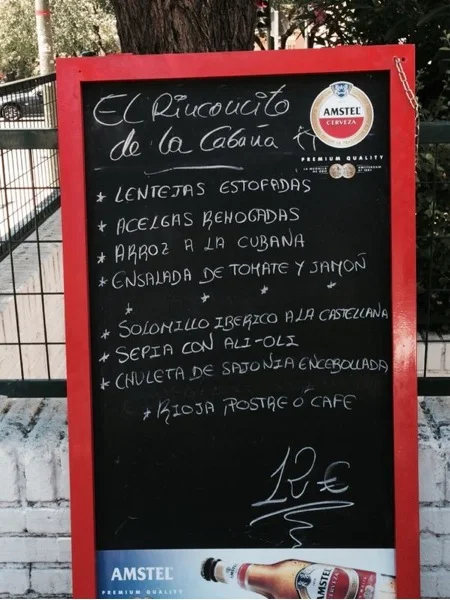 El Rinconcito
de la Cabaña
AMSTEL
CERVEZA
PREMIUM QUALITY
* LENTEJAS ESTOFADAS
* ACELGAS REHOGADAS
* ARROZ A LA CUBANA
* ENSALADA DE TOMATE Y JAMOÑ
* * * *
* SOLOMILLO IBERICO A LA CASTELLANA
* SEPIA CON ALI-OLI
* CHULETA DE SAJONIA ENCEBOLLADA
* RIOJA, POSTRE O CAFE
12 €
AMSTEL
PREMIUM QUALITY
AMSTEL
CERVEZA